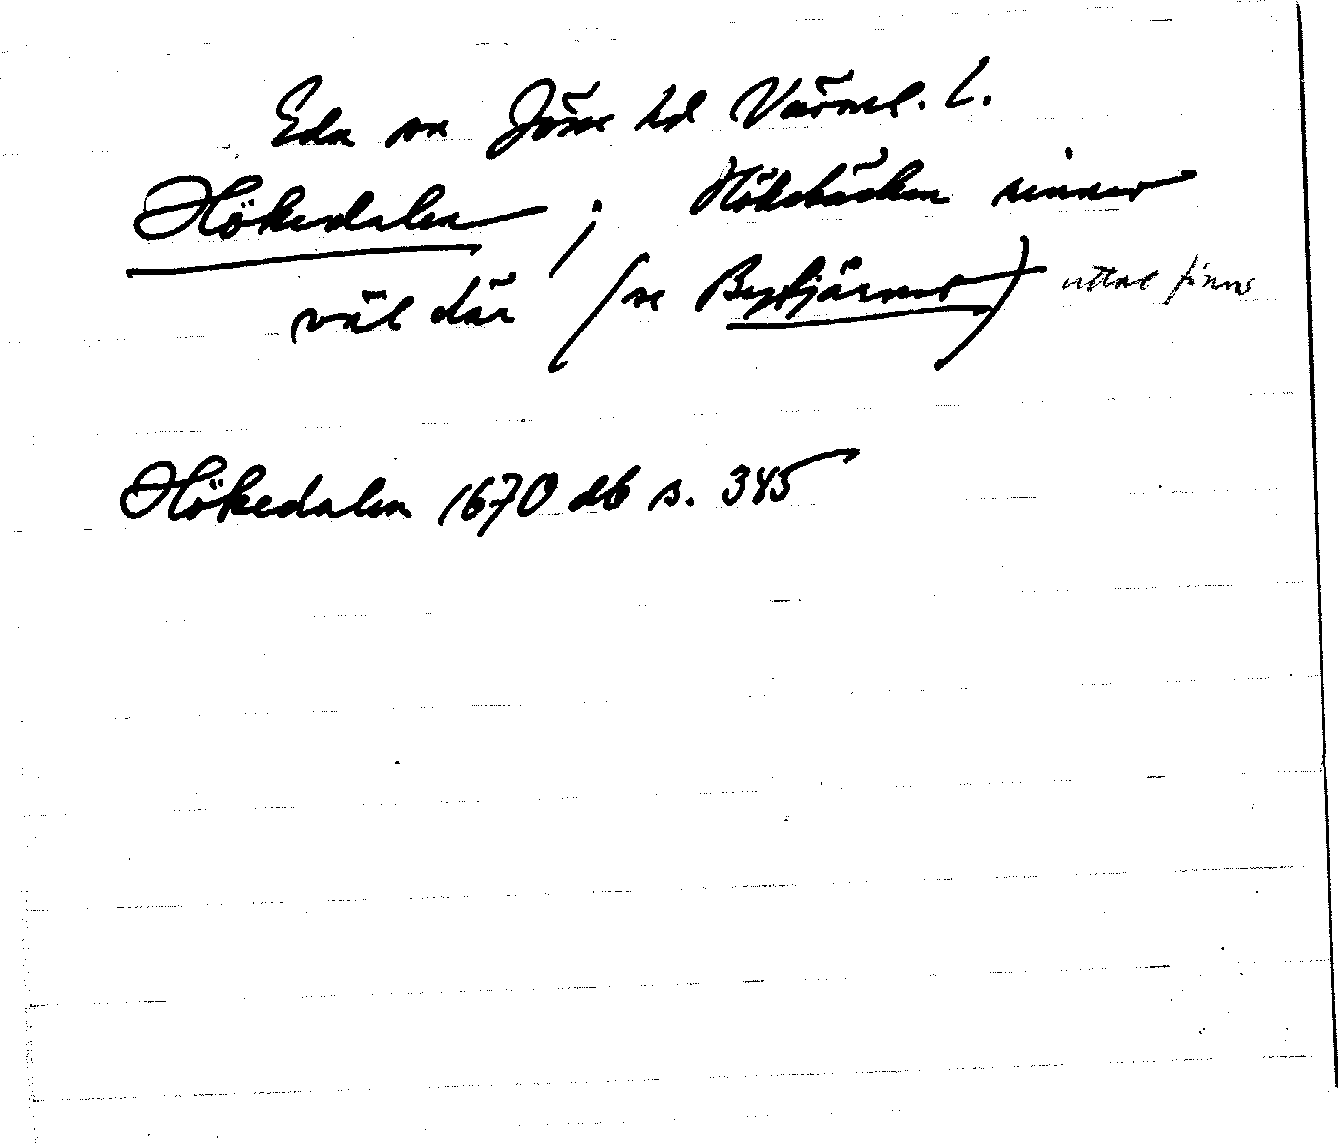 Eda sn Jösse hd Värml. l.
Hökedalen ; Hökebäcken rinner
väl där (se Bytjärnet) uttal finns
Hökedalen 1670 db s. 345